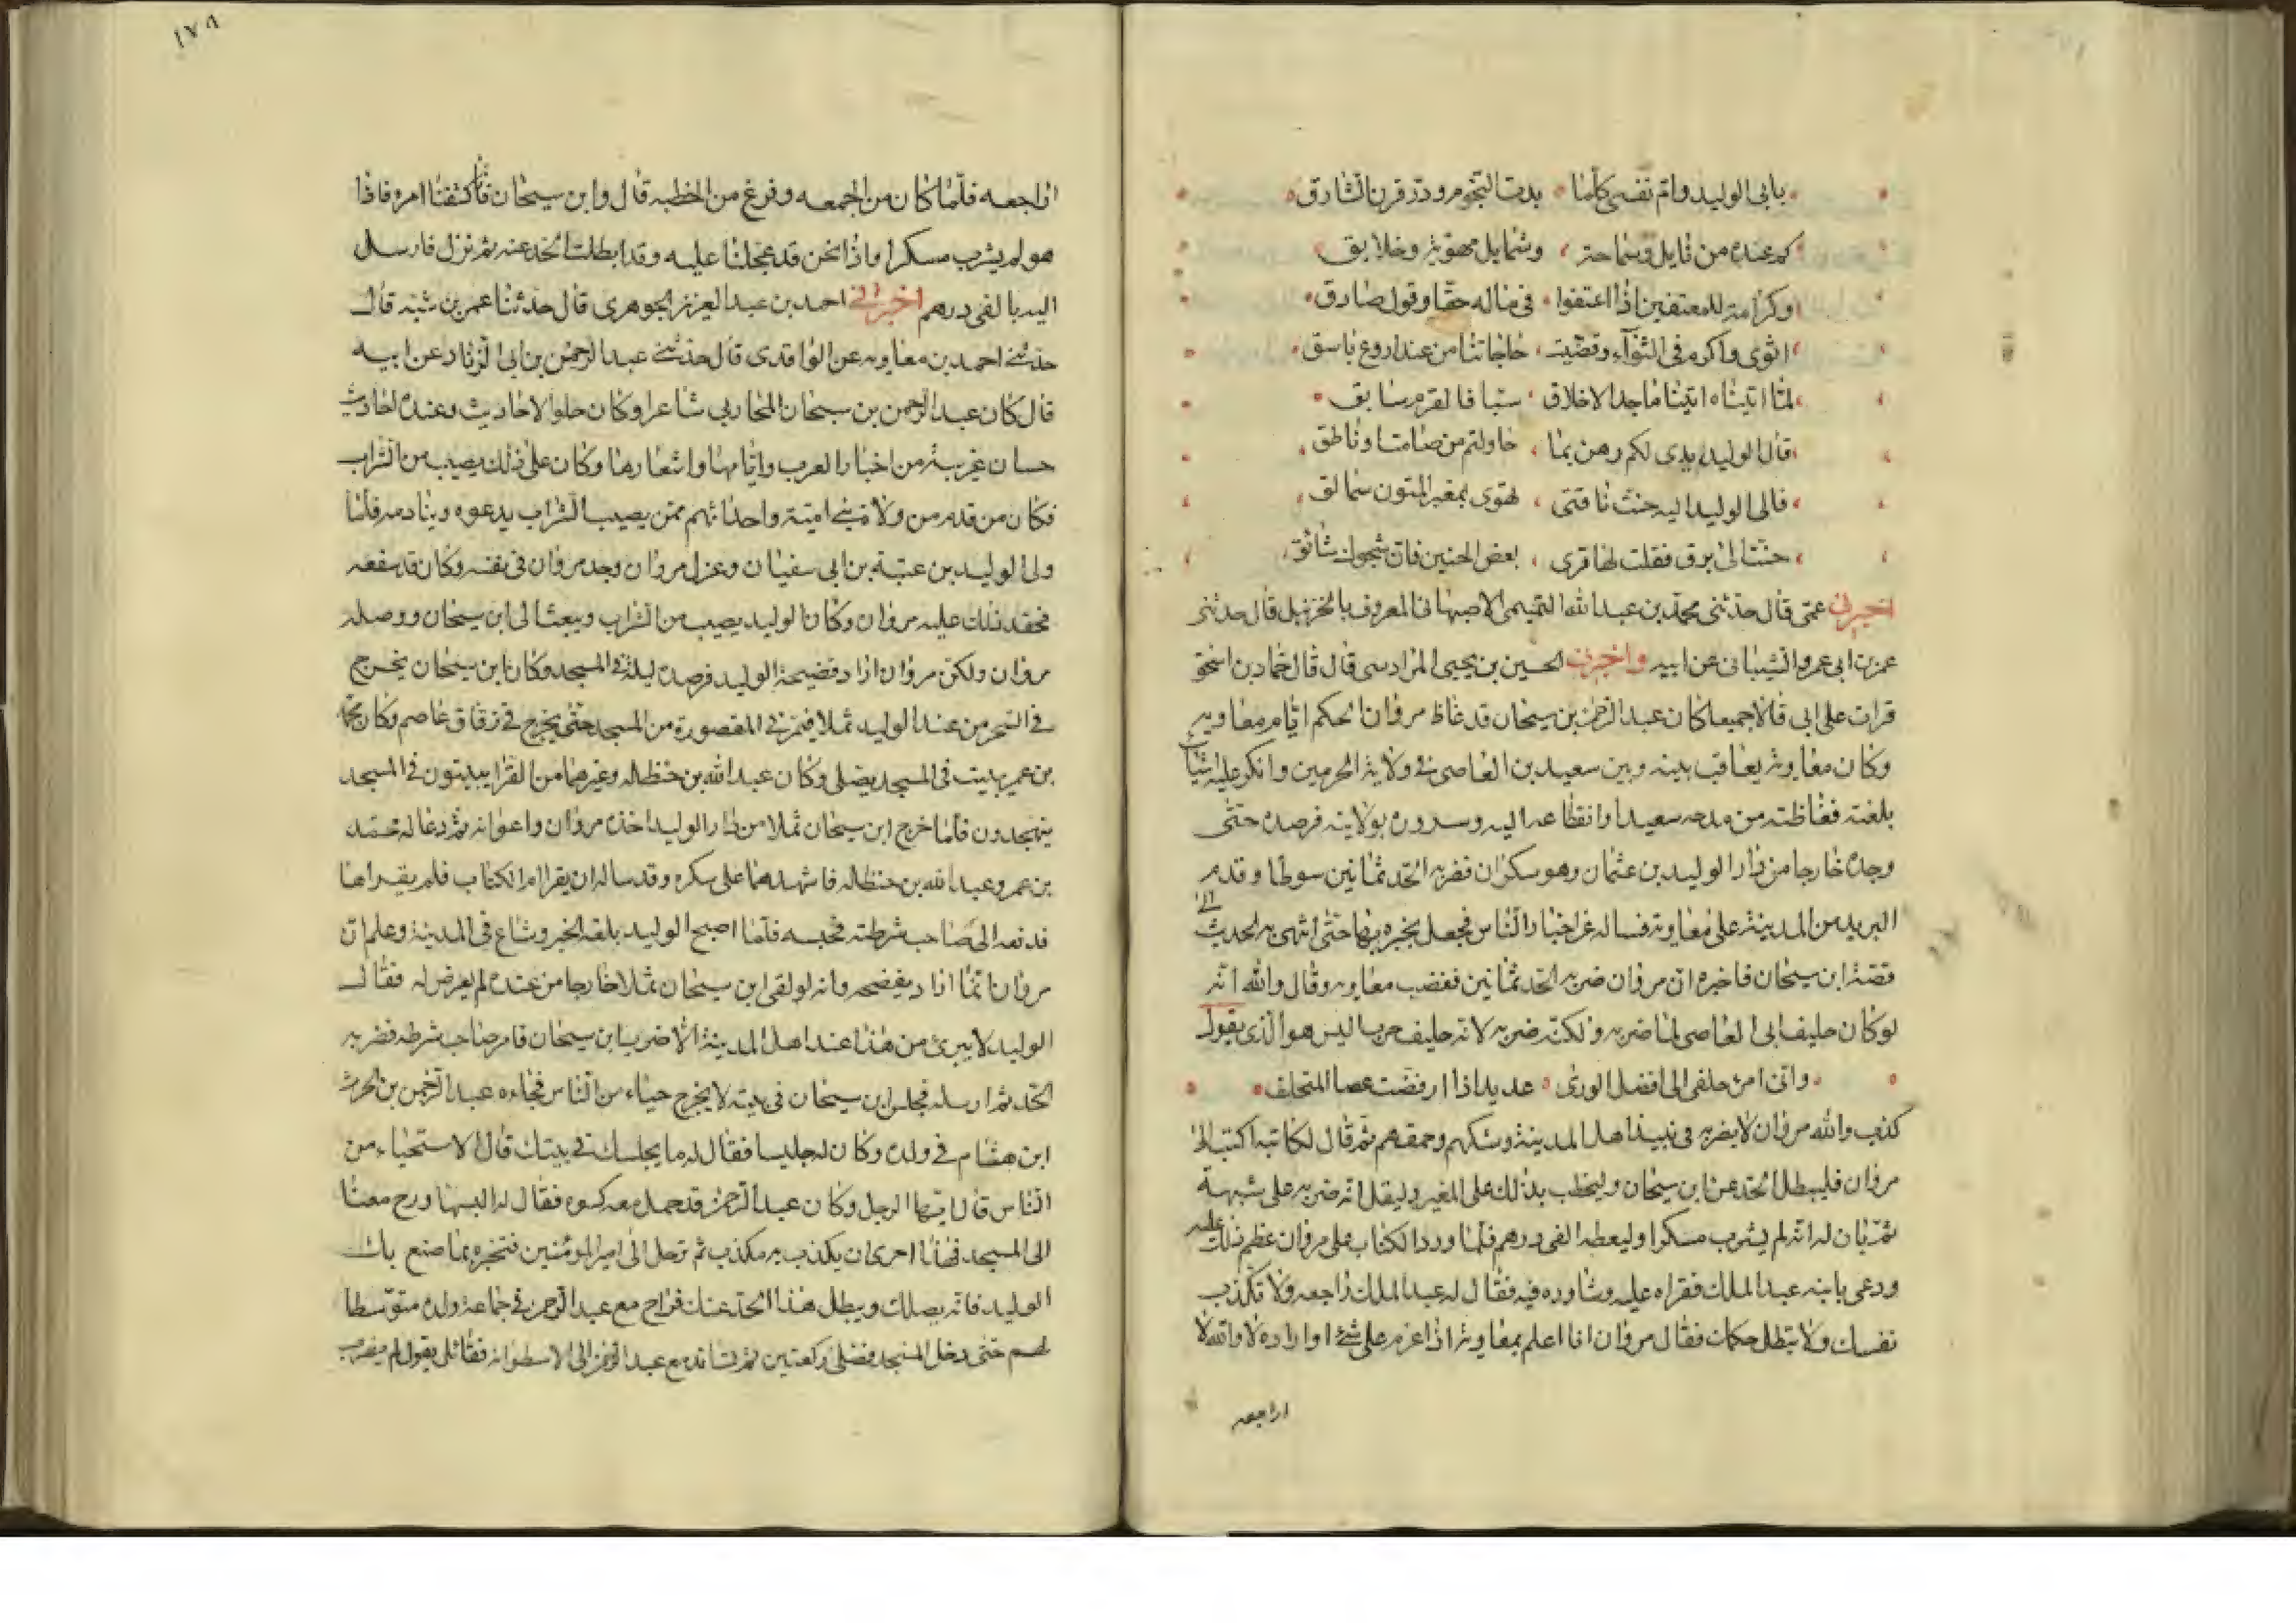 بابى الوليد وام نفسى كلما بدت النجوم وذر قرن الشارق
كم عنده من نايل وسماحة وشمايل ميمونة وخلايق
وكرامة للمعتفين اذا اعتفوا فى ماله حقا وقول صادق
اثوى واكرم فى الثوآء وقضيت حاجاتنا من عند اروع باسق
لما اتيناه اتينا ماجد الاخلاق سباقا لقرم سابق
قال الوليد يدى لكم رهن بما حاولتم من صامت او ناطق
فالى الوليد اليه حنت ناقتى تهوى بمغبر المتون سمالق
حنت الى برق فقلت لها قرى بعض الحنين فان شجوك شائق
اخبرنى عمى قال حدثنى محمد بن عبد الله التميمى الاصبهانى المعروف بالحزنبل قال حدثنى
عمرو بن ابى عمرو الشيبانى عن ابيه واخبرنى الحسين بن يحيى المرادسى قال قال حماد بن اسحق
قرات على ابى قالا جميعا كان عبد الرحمن بن سيحان قد غاظ مروان الحكم ايام معاويه
وكان معاوية يعاقب بينه وبين سعيد بن العاصى فى ولاية الحرمين وانكر عليه شيأ
بلغته فغاظته من مدحه سعيدا وانقطاعه اليه وسروره بولايته فرصده حتى
وجده خارجا من دار الوليد بن عثمان وهو سكران فضربه الحد ثمانين سوطا وقدم
البريد من المدينة على معاوية فساله عن اخبار الناس فجعل يخبره بها حتى انتهى به الحديث الى
قصة ابن سيحان فاخبره ان مروان ضربه الحد ثمانين فغضب معاويه وقال والله انه
لو كان حليف ابى العاصى لما ضربه ولكنه ضربه لانه حليف حرب اليس هو الذى يقول
وانى امرؤ حلفى الى افضل الورى عديدا اذا ارفضت عصا المتحلف
كذب والله مروان لا يضربه فى نبيذ اهل المدينة وشكهم وحمقهم ثم قال لكاتبه اكتب الى
مروان فليبطل الحد عن ابن سيحان وليخطب بذلك على المنبر وليقل انه ضربه على شبهة
ثم بان له انه لم يشرب مسكرا وليعطه الفى درهم فلما ورد الكتاب على مروان عظم ذلك عليه
ودعى بابنه عبد الملك فقراه عليه وشاوره فيه فقال له عبد الملك راجعه ولا تكذب
نفسك ولا تبطل حكمك فقال مروان انا اعلم بمعاوية اذا عزم على شئ او اراده لا والله لا
اراجعه
١٧٩
اراجعه فلما كان من الجمعه وفرغ من الخطبه قال وابن سيحان فأنا كشفنا امره فاذا
هو لم يشرب مسكرا واذا نحن قد عجلنا عليه وقد ابطلت الحد عنه ثم نزل فارسل
اليه بالفى درهم اخبرانى احمد بن عبد العزيز الجوهرى قال حدثنا عمر بن شبه قال
حدثنى احمد بن معاويه عن الواقدى قال حدثنى عبد الرحمن بن ابى الزناد عن ابيه
قال كان عبد الرحمن بن سيحان المحاربى شاعرا وكان حلو الاحاديث وعنده احاديث
حسان غريبة من اخبار العرب وايامها واشعارها وكان على ذلك يصيب من الشراب
فكان من قدم من ولاة بنى امية واحداثهم ممن يصيب الشراب يدعوه وينادمه فلما
ولى الوليد بن عتبة بن ابى سفيان وعزل مروان وجد مروان فى نفسه وكان قد سفعه
فحقد ذلك عليه مروان وكان الوليد يصيب من الشراب ويبعث الى ابن سيحان ووصله
مروان ولكن مروان اراد فضيحة الوليد فرصده ليلة فى المسجد وكان ابن سيحان يخرج
فى السحر من عند الوليد ثملا فيمر فى المقصورة من المسجد حتى يخرج فى زقاق عاصم وكان محمد
بن عمر يبيت فى المسجد يصلى وكان عبد الله بن حنظله وغيرهما من القرا يبيتون فى المسجد
يتهجدون فلما خرج ابن سيحان ثملا من دار الوليد اخذه مروان واعوانه ثم دعا له محمد
بن عمر وعبد الله بن حنظله فاشهدهما على سكره وقد ساله ان يقرا ام الكتاب فلم يقراها
فدفعه الى صاحب شرطته فحبسه فلما اصبح الوليد بلغه الخبر وشاع فى المدينة وعلم ان
مروان انما اراد يفضحه وانه لو لقى ابن سيحان ثملا خارجا من عنده لم يعرض له فقال
الوليد لا يبرئ من هذا عند اهل المدينة الا ضرب ابن سيحان فامر صاحب شرطه فضربه
الحد ثم ارسله فجلس ابن سيحان فى بيته لا يخرج حياء من الناس فجاءه عبد الرحمن بن الحرث
ابن هشام فى ولده وكان له جليسا فقال له ما يجلسك فى بيتك قال الاستحياء من
الناس قال ايها الرجل وكان عبد الرحمن قد حمل معه كسوه فقال له البسها ورح معنا
الى المسجد فهذا احرى ان يكذب به مكذب ثم ترحل الى امير المؤمنين فتخبره بما صنع بك
الوليد فانه يصلك ويبطل هذا الحد عنك فراح مع عبد الرحمن فى جماعة ولده متوسطا
لهم حتى دخل المسجد فصلى ركعتين ثم تساند مع عبد الرحمن الى الاسطوانه فقائل يقول لم يضرب